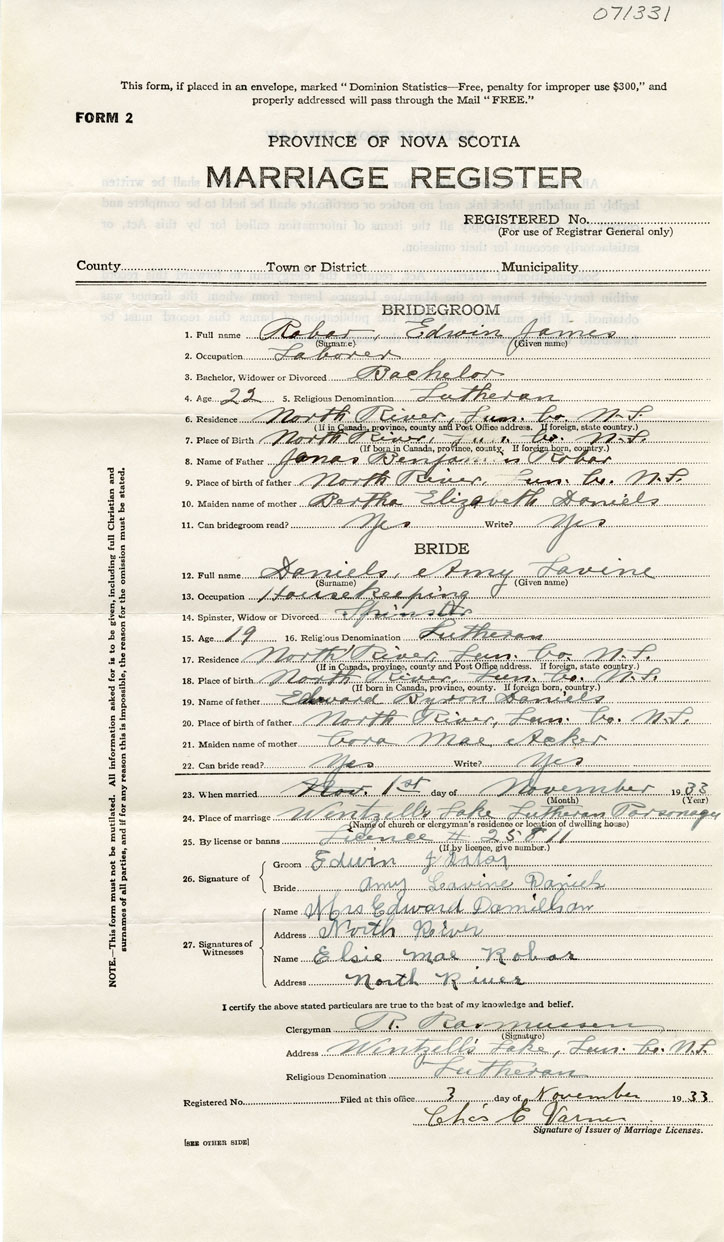 071331
This form, if placed in an envelope, marked "Dominion Statistics—Free, penalty for improper use $300," and
properly addressed will pass through the Mail "FREE."
FORM 2
PROVINCE OF NOVA SCOTIA
MARRIAGE REGISTER
REGISTERED No.
(For use of Registrar General only)
County Town or District Municipality
BRIDEGROOM
1. Full name Robar, Edwin James
(Surname) (Given name)
2. Occupation Laborer
3. Bachelor, Widower or Divorced Bachelor
4. Age 22 5. Religious Denomination Lutheran
6. Residence North River, Lun. Co. N.S.
(If in Canada, province, county and Post Office address. If foreign, state country.)
7. Place of Birth North River, Lun. Co. N.S.
(If born in Canada, province, county. If foreign born, country.)
8. Name of Father Jonas Benjamin Robar
9. Place of birth of father North River, Lun. Co. N.S.
10. Maiden name of mother Bertha Elizabeth Daniels
11. Can bridegroom read? Yes Write? Yes
BRIDE
12. Full name Daniels, Amy Lavine
(Surname) (Given name)
13. Occupation Housekeeping
14. Spinster, Widow or Divorced Spinster
15. Age 19 16. Religious Denomination Lutheran
17. Residence North River, Lun. Co. N.S.
(If in Canada, province, county and Post Office address. If foreign, state country.)
18. Place of birth North River, Lun. Co. N.S.
(If born in Canada, province, county. If foreign born, country.)
19. Name of father Edward Byron Daniels
20. Place of birth of father North River, Lun. Co. N.S.
21. Maiden name of mother Cora Mae Acker
22. Can bride read? Yes Write? Yes
23. When married Nov. 1st day of November 1933
(Month) (Year)
24. Place of marriage Wentzell's Lake Lutheran Parsonage
(Name of church or clergyman's residence or location of dwelling house)
25. By license or banns Licence # 25811
(If by licence, give number.)
26. Signature of Groom Edwin J Robar
Bride Amy Lavine Daniels
27. Signatures of Witnesses
Name Mrs Edward
Address North River
Name Elsie Mae Robar
Address North River
I certify the above stated particulars are true to the best of my knowledge and belief.
Clergyman R. Rasmussen
(Signature)
Address Wentzell's Lake, Lun. Co. N.S.
Religious Denomination Lutheran
Registered No. Filed at this office 3 day of November 1933
Chas E Varner
Signature of Issuer of Marriage Licenses.
[SEE OTHER SIDE]
NOTE.—This form must not be mutilated. All information asked for is to be given, including full Christian and
surnames of all parties, and if for any reason this is impossible, the reason for the omission must be stated.